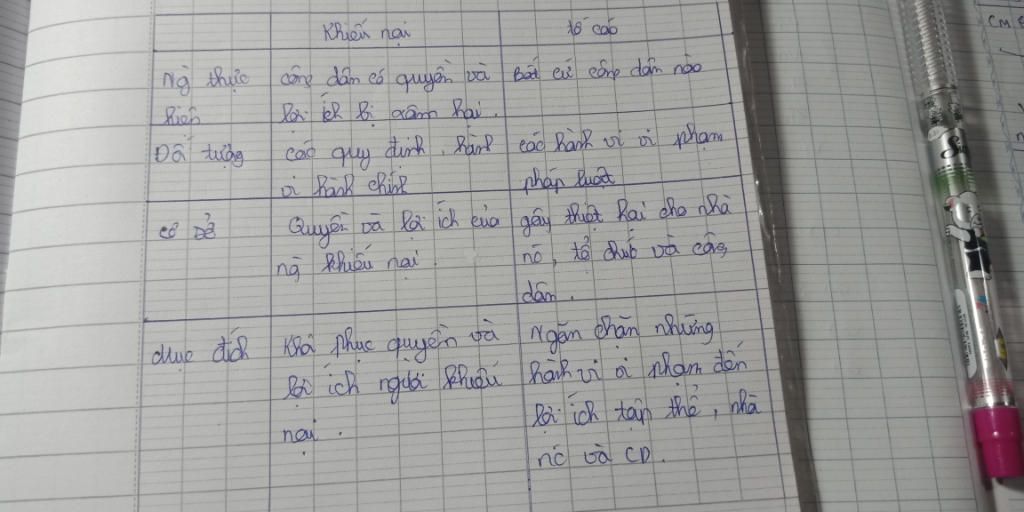 Khiếu nại tố cáo
Ng thực công dân có quyền và Bất cứ công dân nào
hiện lợi ích bị xâm hại.
Đối tượng các quy định, hành các hành vi vi phạm
vi hành chính pháp luật
cơ sở Quyền và lợi ích của gây thiệt hại cho nhà
ng khiếu nại. nc, tổ chức và công
dân.
Mục đích Khôi phục quyền và Ngăn chặn những
lợi ích người khiếu hành vi vi phạm đến
nại. lợi ích tập thể, nhà
nc và CD.
CM